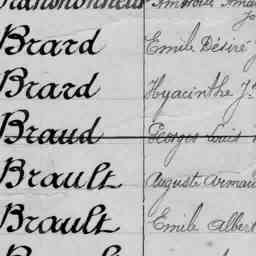 Brard Emile Désiré
Brard Hyacinthe J.
Braud Georges Louis
Brault Auguste Arman
Brault Emile Albert